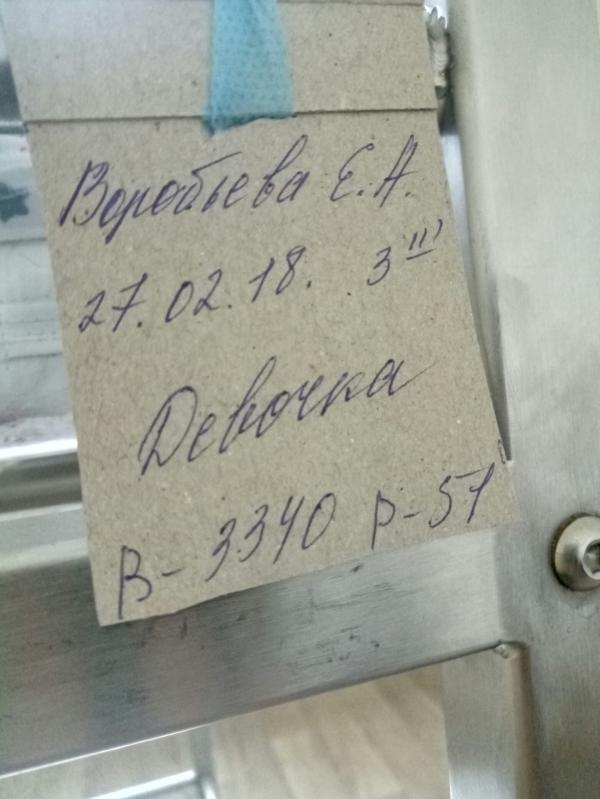 Воробьева Е.А.
27.02.18. 3 III
Девочка
В- 3340 р-51